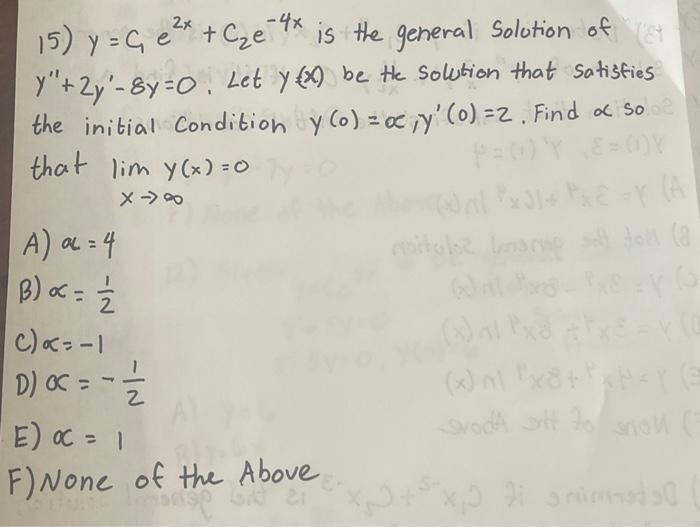 15) y = C₁ e^{2x} + C₂e^{-4x} is the general Solution of
y"+2y'-8y=0. Let y(x) be the Solution that Satisfies
the initial Condition y(0)=α, y'(0)=2. Find α so
that lim y(x)=0
x→∞
A) α = 4
B) α = 1/2
C) α = -1
D) α = - 1/2
E) α = 1
F) None of the Above